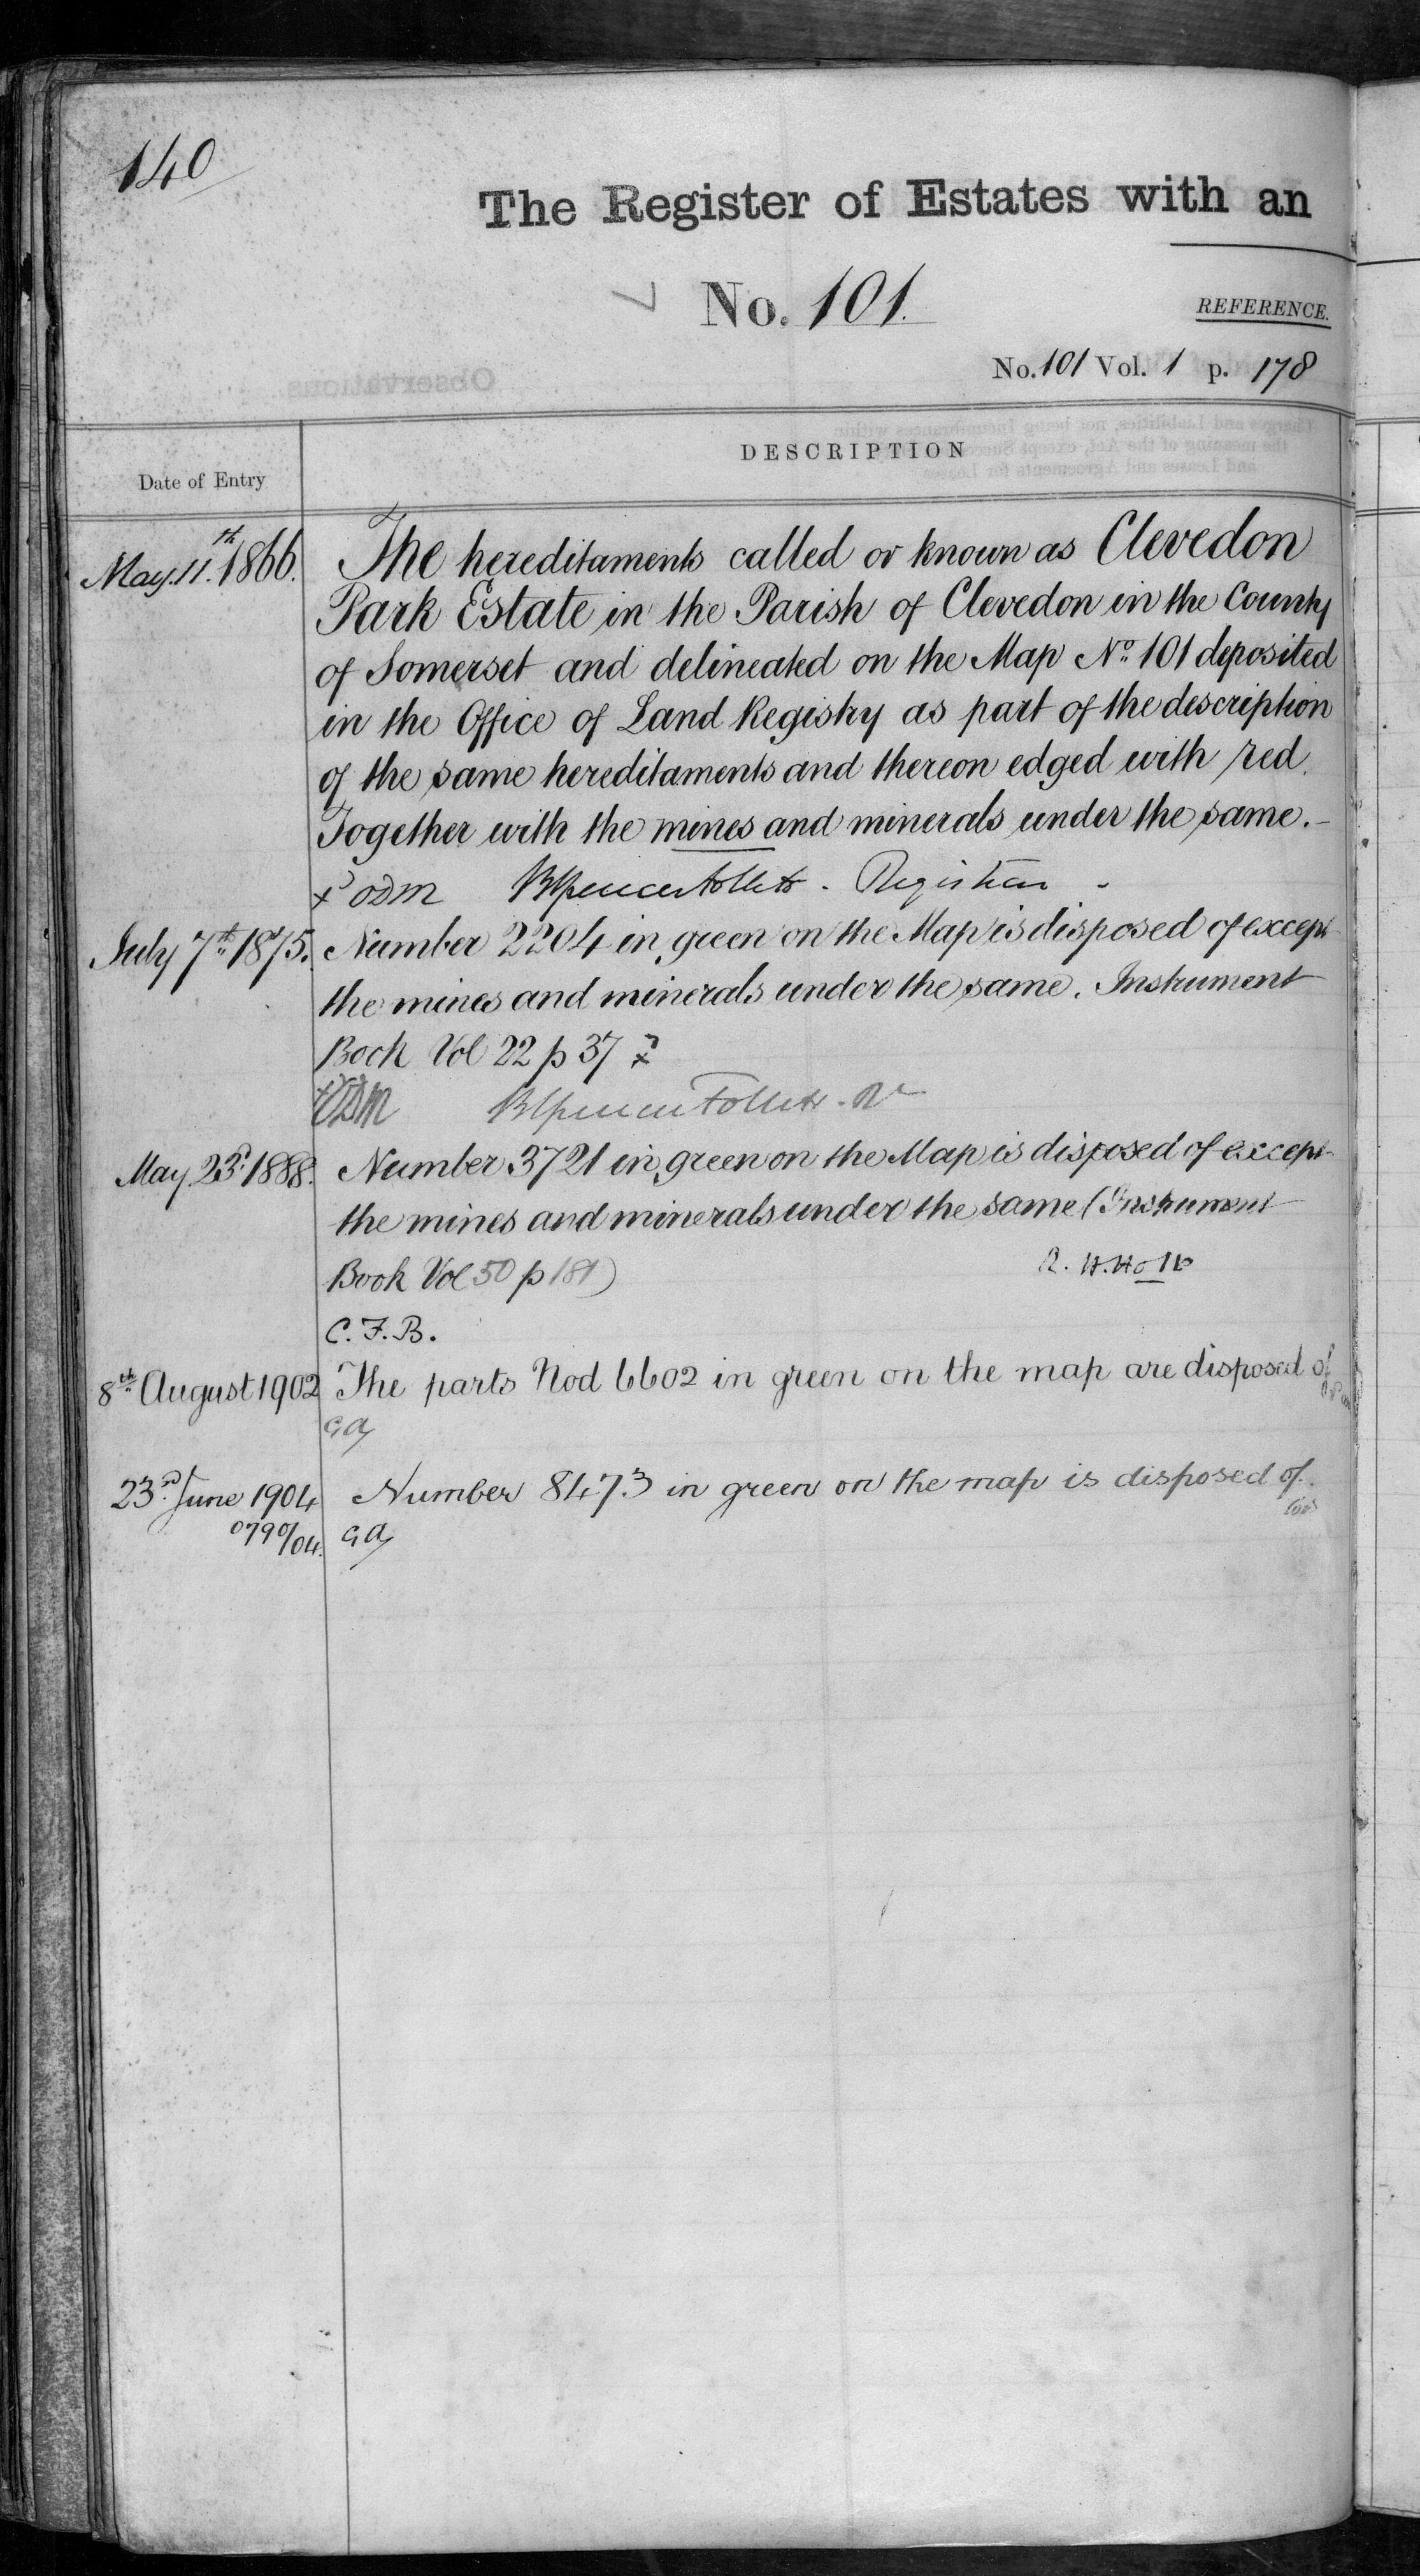 140
The Register of Estates with an
No. 101.
REFERENCE.
No. 101 Vol. 1 p. 178
Observations
DESCRIPTION
Date of Entry
May. 11th. 1866.
The hereditaments called or known as Clevedon
Park Estate in the Parish of Clevedon in the County
of Somerset and delineated on the Map No. 101 deposited
in the Office of Land Registry as part of the description
of the same hereditaments and thereon edged with red.
Together with the mines and minerals under the same.-
ODM Registrar
July 7th. 1875.
Number 2204 in green on the Map is disposed of except
the mines and minerals under the same. Instrument
Book Vol 22 p 37
ODM
May 23rd. 1888.
Number 3721 in green on the Map is disposed of except
the mines and minerals under the same (Instrument
Book Vol 50 p 181) R. H. Holt
C. F. B.
8th August 1902
The parts Nod 6602 in green on the map are disposed of
GA
23rd. June 1904
Number 8473 in green on the map is disposed of.
0790/04.
GA